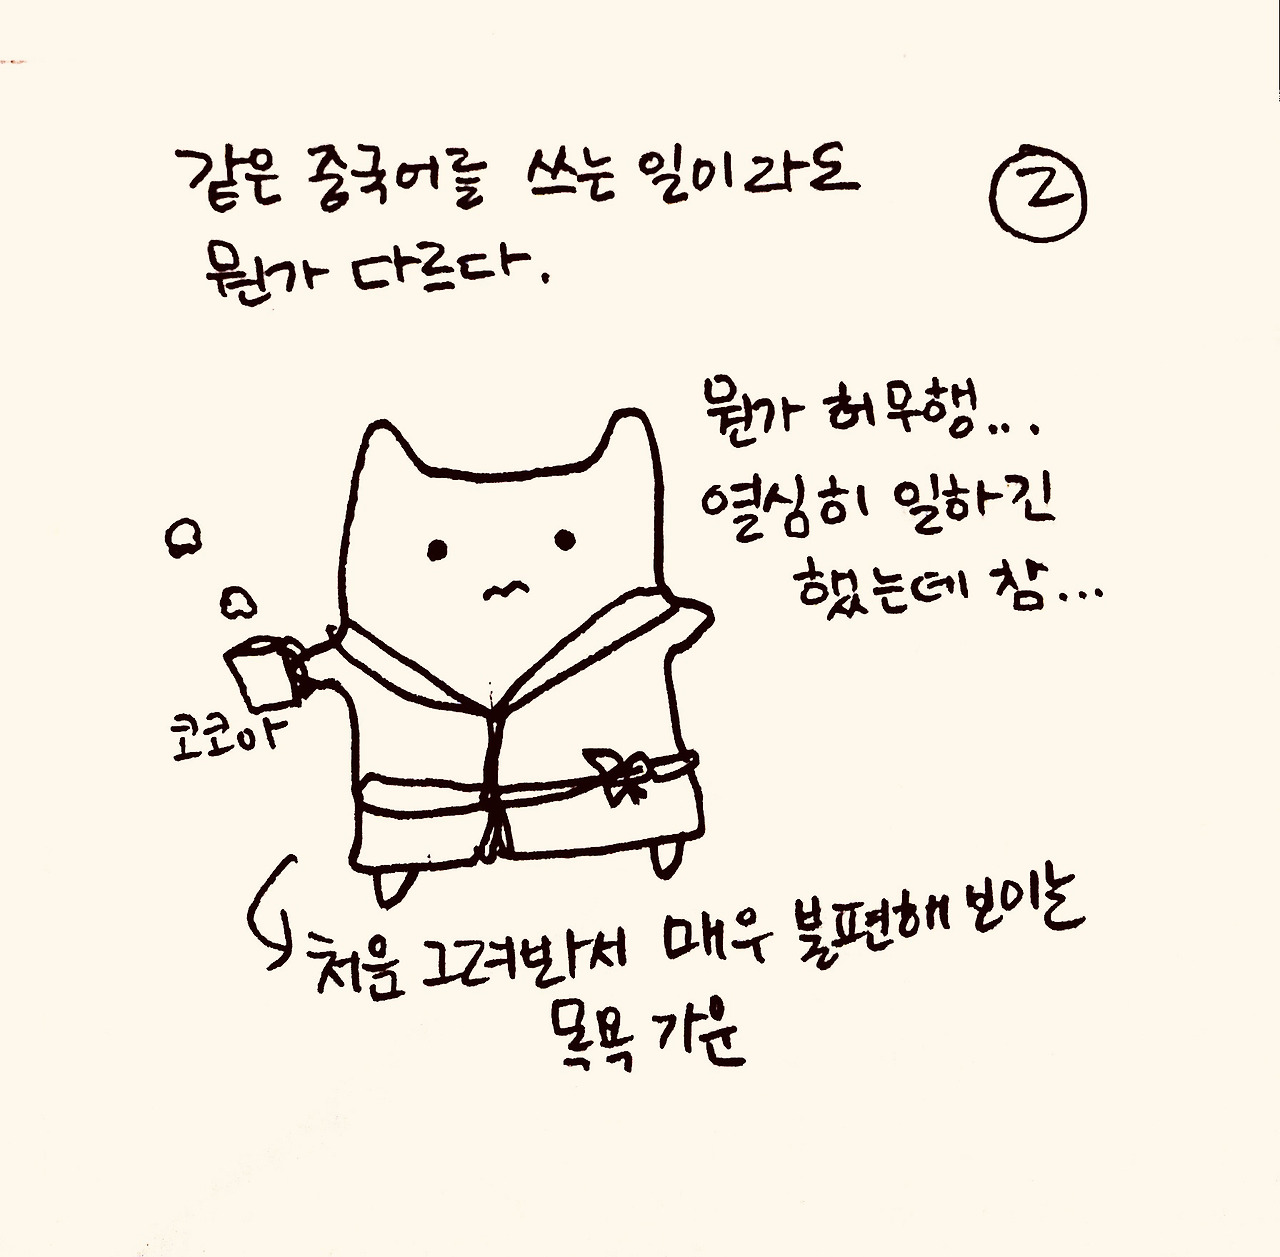 같은 중국어를 쓰는 일이라도
②
뭔가 다르다.
뭔가 허무행...
열심히 일하긴
했는데 참...
코코아
처음 그려봐서 매우 불편해 보이는
목욕 가운